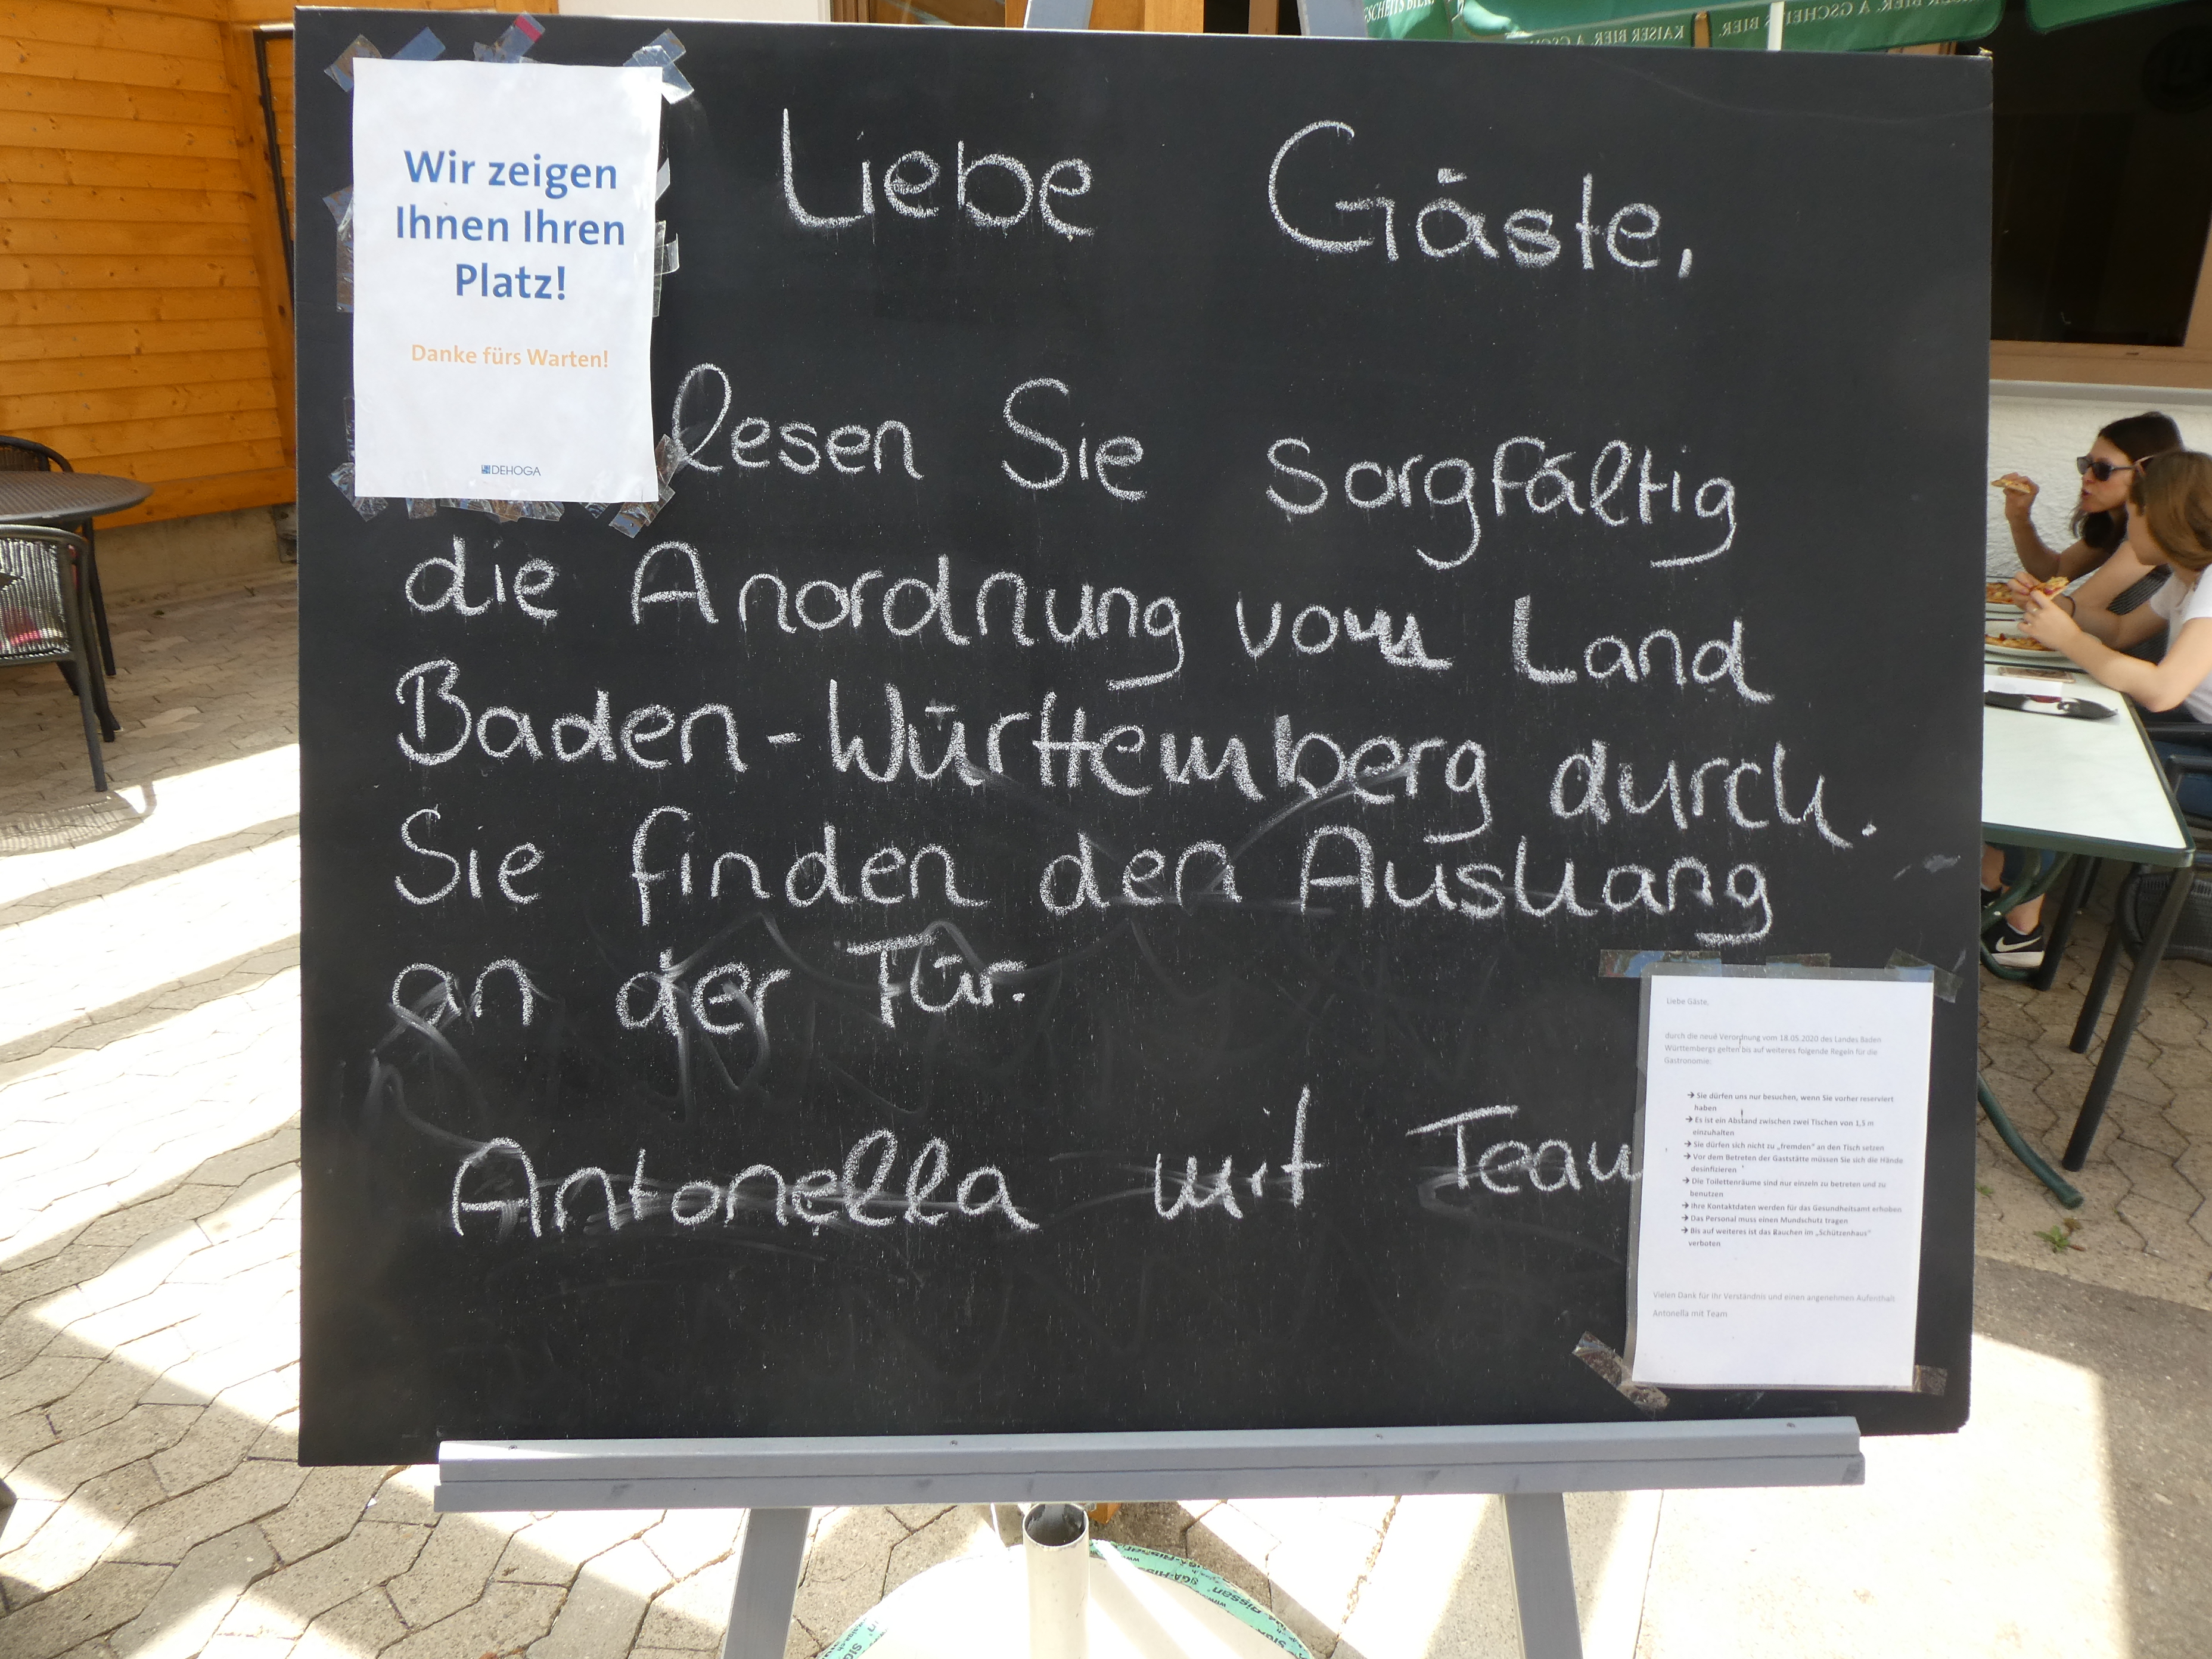 Wir zeigen
Ihnen Ihren
Platz!
Danke fürs Warten!
DEHOGA
Liebe Gäste,
lesen Sie sorgfältig
die Anordnung vom Land
Baden-Württemberg durch.
Sie finden den Aushang
an der Tür.
Antonella mit Team
Liebe Gäste,
durch die neue Verordnung vom 18.05.2020 des Landes Baden
Württembergs gelten bis auf weiteres folgende Regeln für die
Gastronomie:
→ Sie dürfen uns nur besuchen, wenn Sie vorher reserviert
haben
→ Es ist ein Abstand zwischen zwei Tischen von 1,5 m
einzuhalten
→ Sie dürfen sich nicht zu „fremden" an den Tisch setzen
→ Vor dem Betreten der Gaststätte müssen Sie sich die Hände
desinfizieren
→ Die Toilettenräume sind nur einzeln zu betreten und zu
benutzen
→ Ihre Kontaktdaten werden für das Gesundheitsamt erhoben
→ Das Personal muss einen Mundschutz tragen
→ Bis auf weiteres ist das Rauchen im „Schützenhaus"
verboten
Vielen Dank für Ihr Verständnis und einen angenehmen Aufenthalt
Antonella mit Team
GSCHEITS BIER.
KAISER BIER. A GSCHEITS BIER.
KAISER BIER. A GSCHEITS BIER.